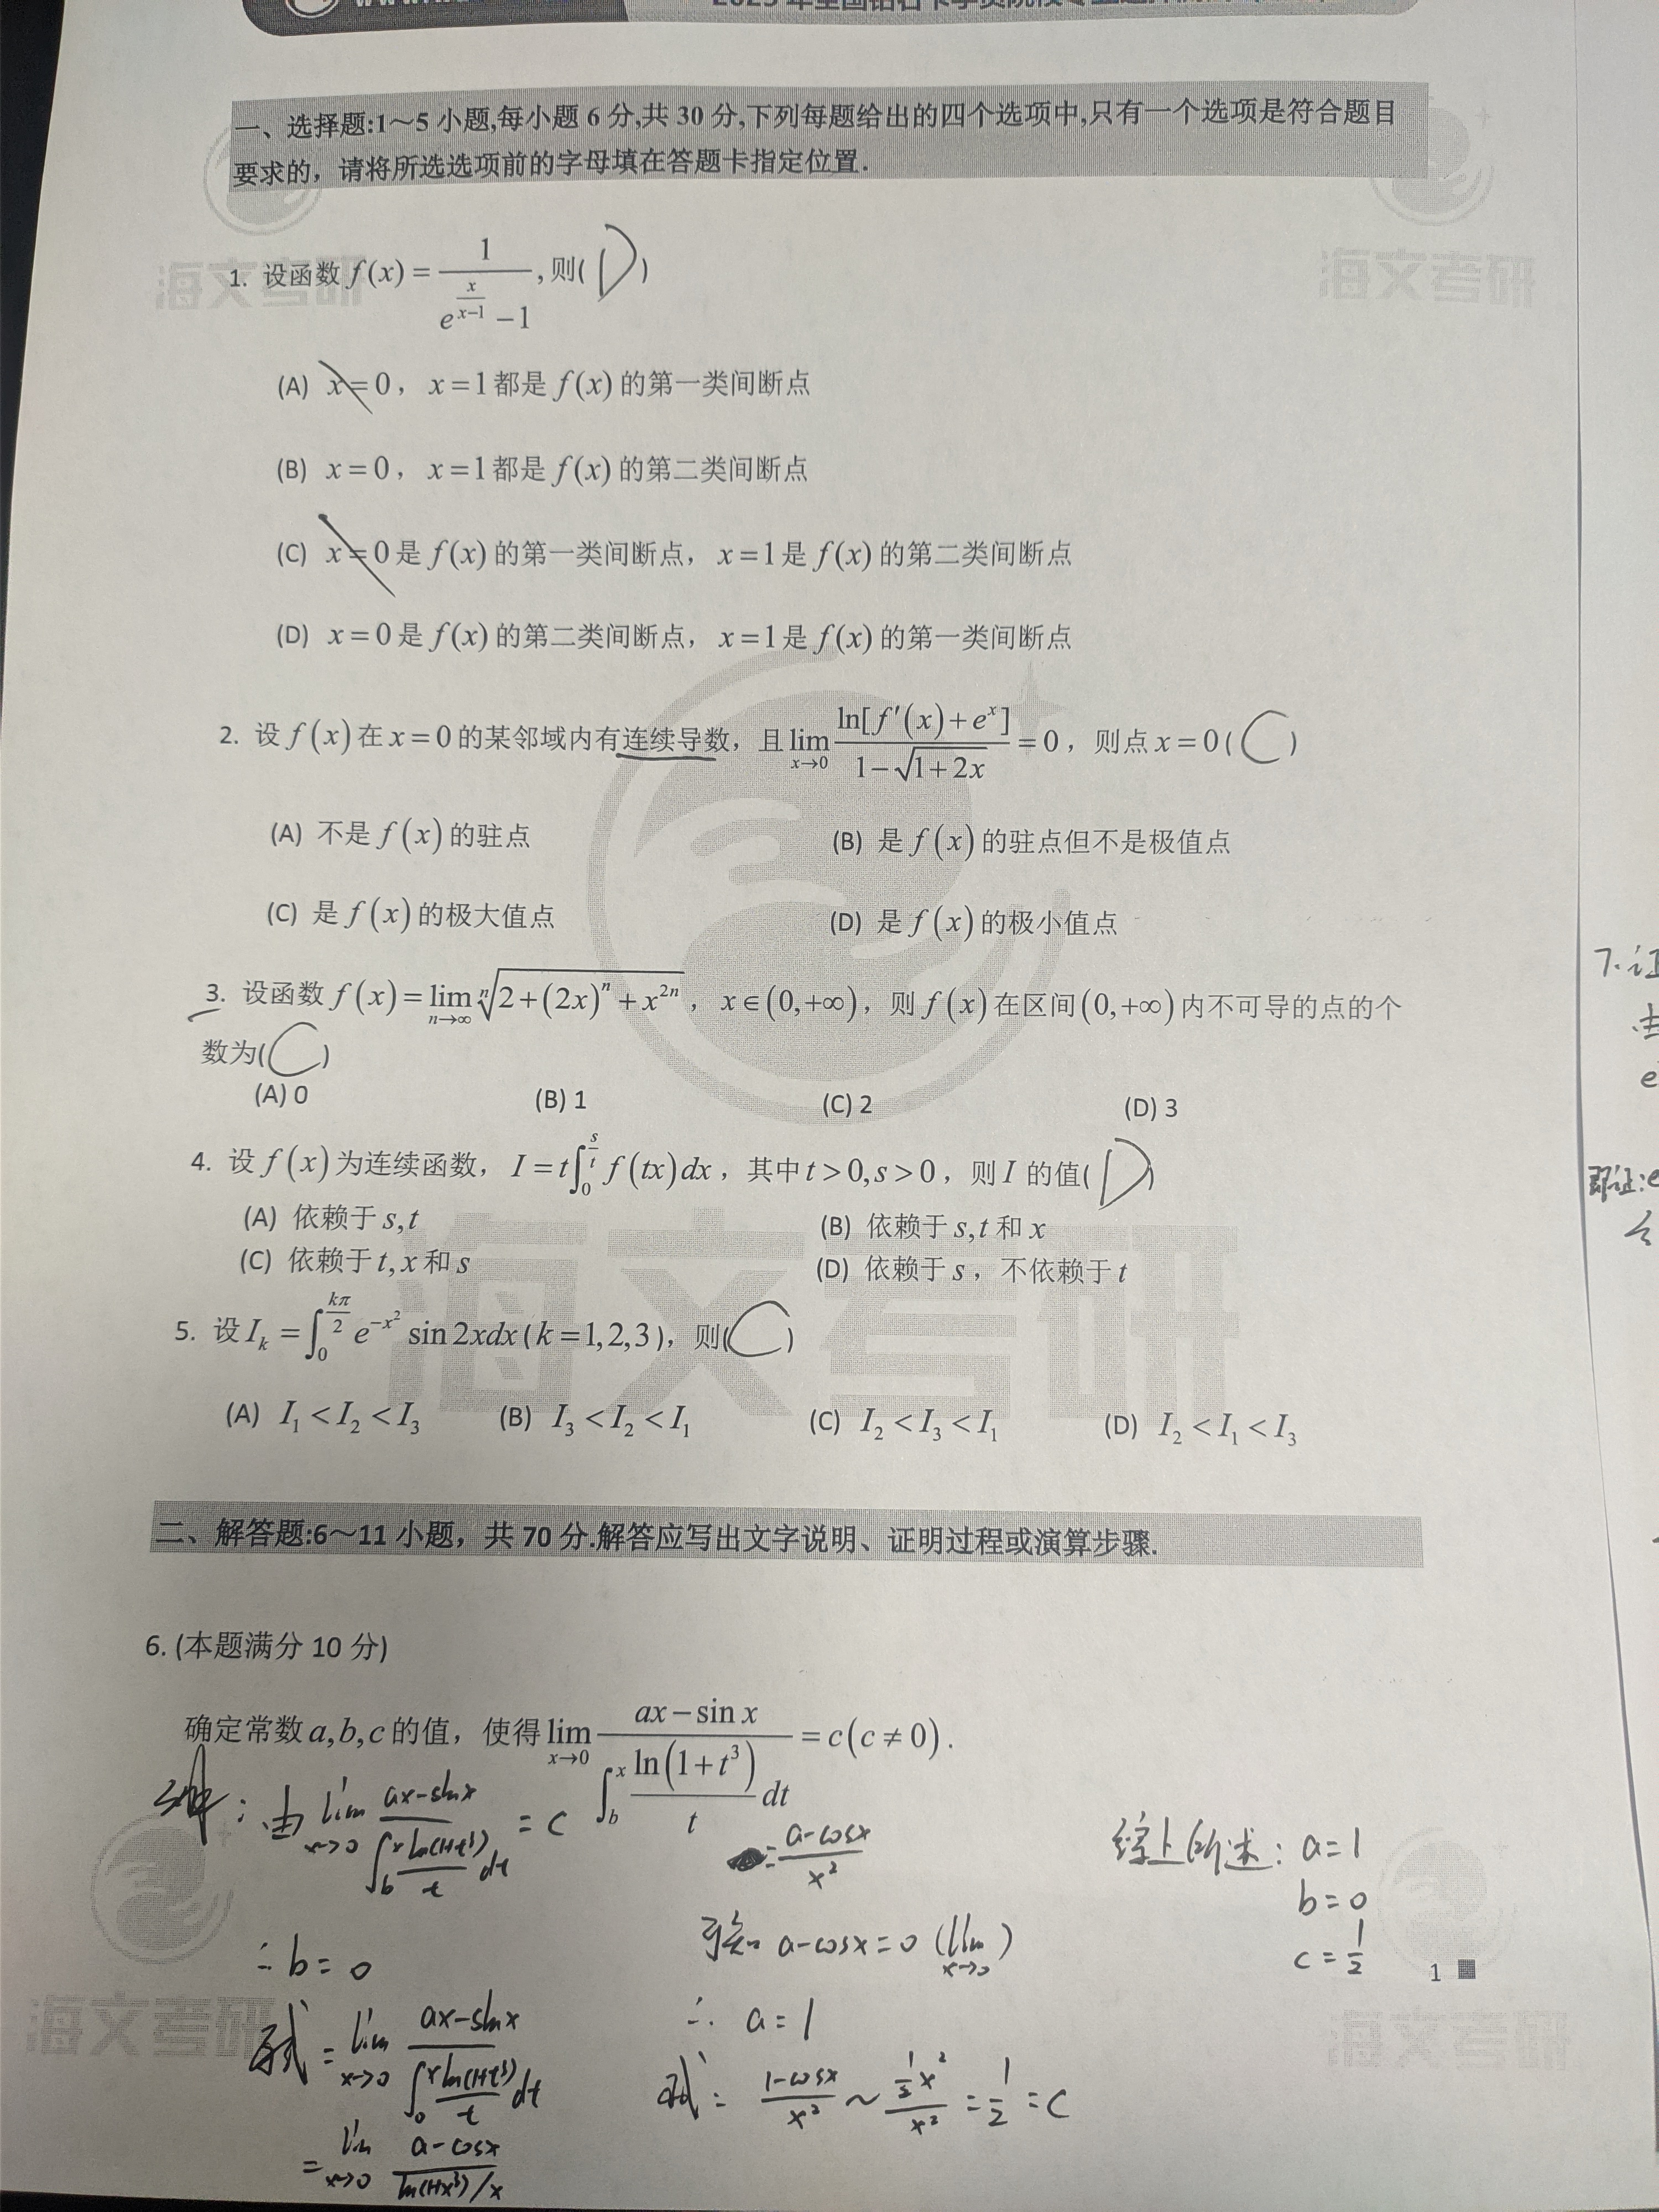 一、选择题:1～5小题,每小题6分,共30分,下列每题给出的四个选项中,只有一个选项是符合题目
要求的，请将所选选项前的字母填在答题卡指定位置.
海文考研
海文考研
1. 设函数 f(x) = 1/(e^{x/(x-1)} - 1), 则( D )
(A) x=0，x=1都是 f(x) 的第一类间断点
(B) x=0，x=1都是 f(x) 的第二类间断点
(C) x=0是 f(x) 的第一类间断点，x=1是 f(x) 的第二类间断点
(D) x=0是 f(x) 的第二类间断点，x=1是 f(x) 的第一类间断点
2. 设 f(x) 在 x=0 的某邻域内有连续导数，且 lim_{x→0} ln[f′(x)+e^x]/(1-√(1+2x)) = 0，则点 x=0( C )
(A) 不是 f(x) 的驻点
(B) 是 f(x) 的驻点但不是极值点
(C) 是 f(x) 的极大值点
(D) 是 f(x) 的极小值点
3. 设函数 f(x) = lim_{n→∞} ⁿ√(2+(2x)^n+x^{2n})，x∈(0,+∞)，则 f(x) 在区间(0,+∞)内不可导的点的个
数为( C )
(A) 0
(B) 1
(C) 2
(D) 3
4. 设 f(x) 为连续函数，I = t∫_0^{s/t} f(tx)dx，其中 t>0,s>0，则 I 的值( D )
(A) 依赖于 s,t
(B) 依赖于 s,t 和 x
(C) 依赖于 t,x 和 s
(D) 依赖于 s，不依赖于 t
海文考研
5. 设 I_k = ∫_0^{kπ/2} e^{-x²} sin2xdx(k=1,2,3)，则( C )
(A) I₁<I₂<I₃
(B) I₃<I₂<I₁
(C) I₂<I₃<I₁
(D) I₂<I₁<I₃
二、解答题:6～11小题，共70分.解答应写出文字说明、证明过程或演算步骤.
6. (本题满分10分)
确定常数 a,b,c 的值，使得 lim_{x→0} (ax-sinx)/(∫_b^x ln(1+t³)/t dt) = c(c≠0).
解：由 lim_{x→0} (ax-sinx)/(∫_b^x ln(1+t³)/t dt) = c
∴ b=0
原式 = lim_{x→0} (ax-sinx)/(∫_0^x ln(1+t³)/t dt)
= lim_{x→0} (a-cosx)/(ln(1+x³)/x)
= (a-cosx)/x²
可知 a-cosx=0 (lim_{x→0})
∴ a=1
原式 = (1-cosx)/x² ~ (½x²)/x² = 1/2 = c
综上所述: a=1
b=0
c=1/2
1
海文考研
海文考研
7.证
由
e
即证:e
令